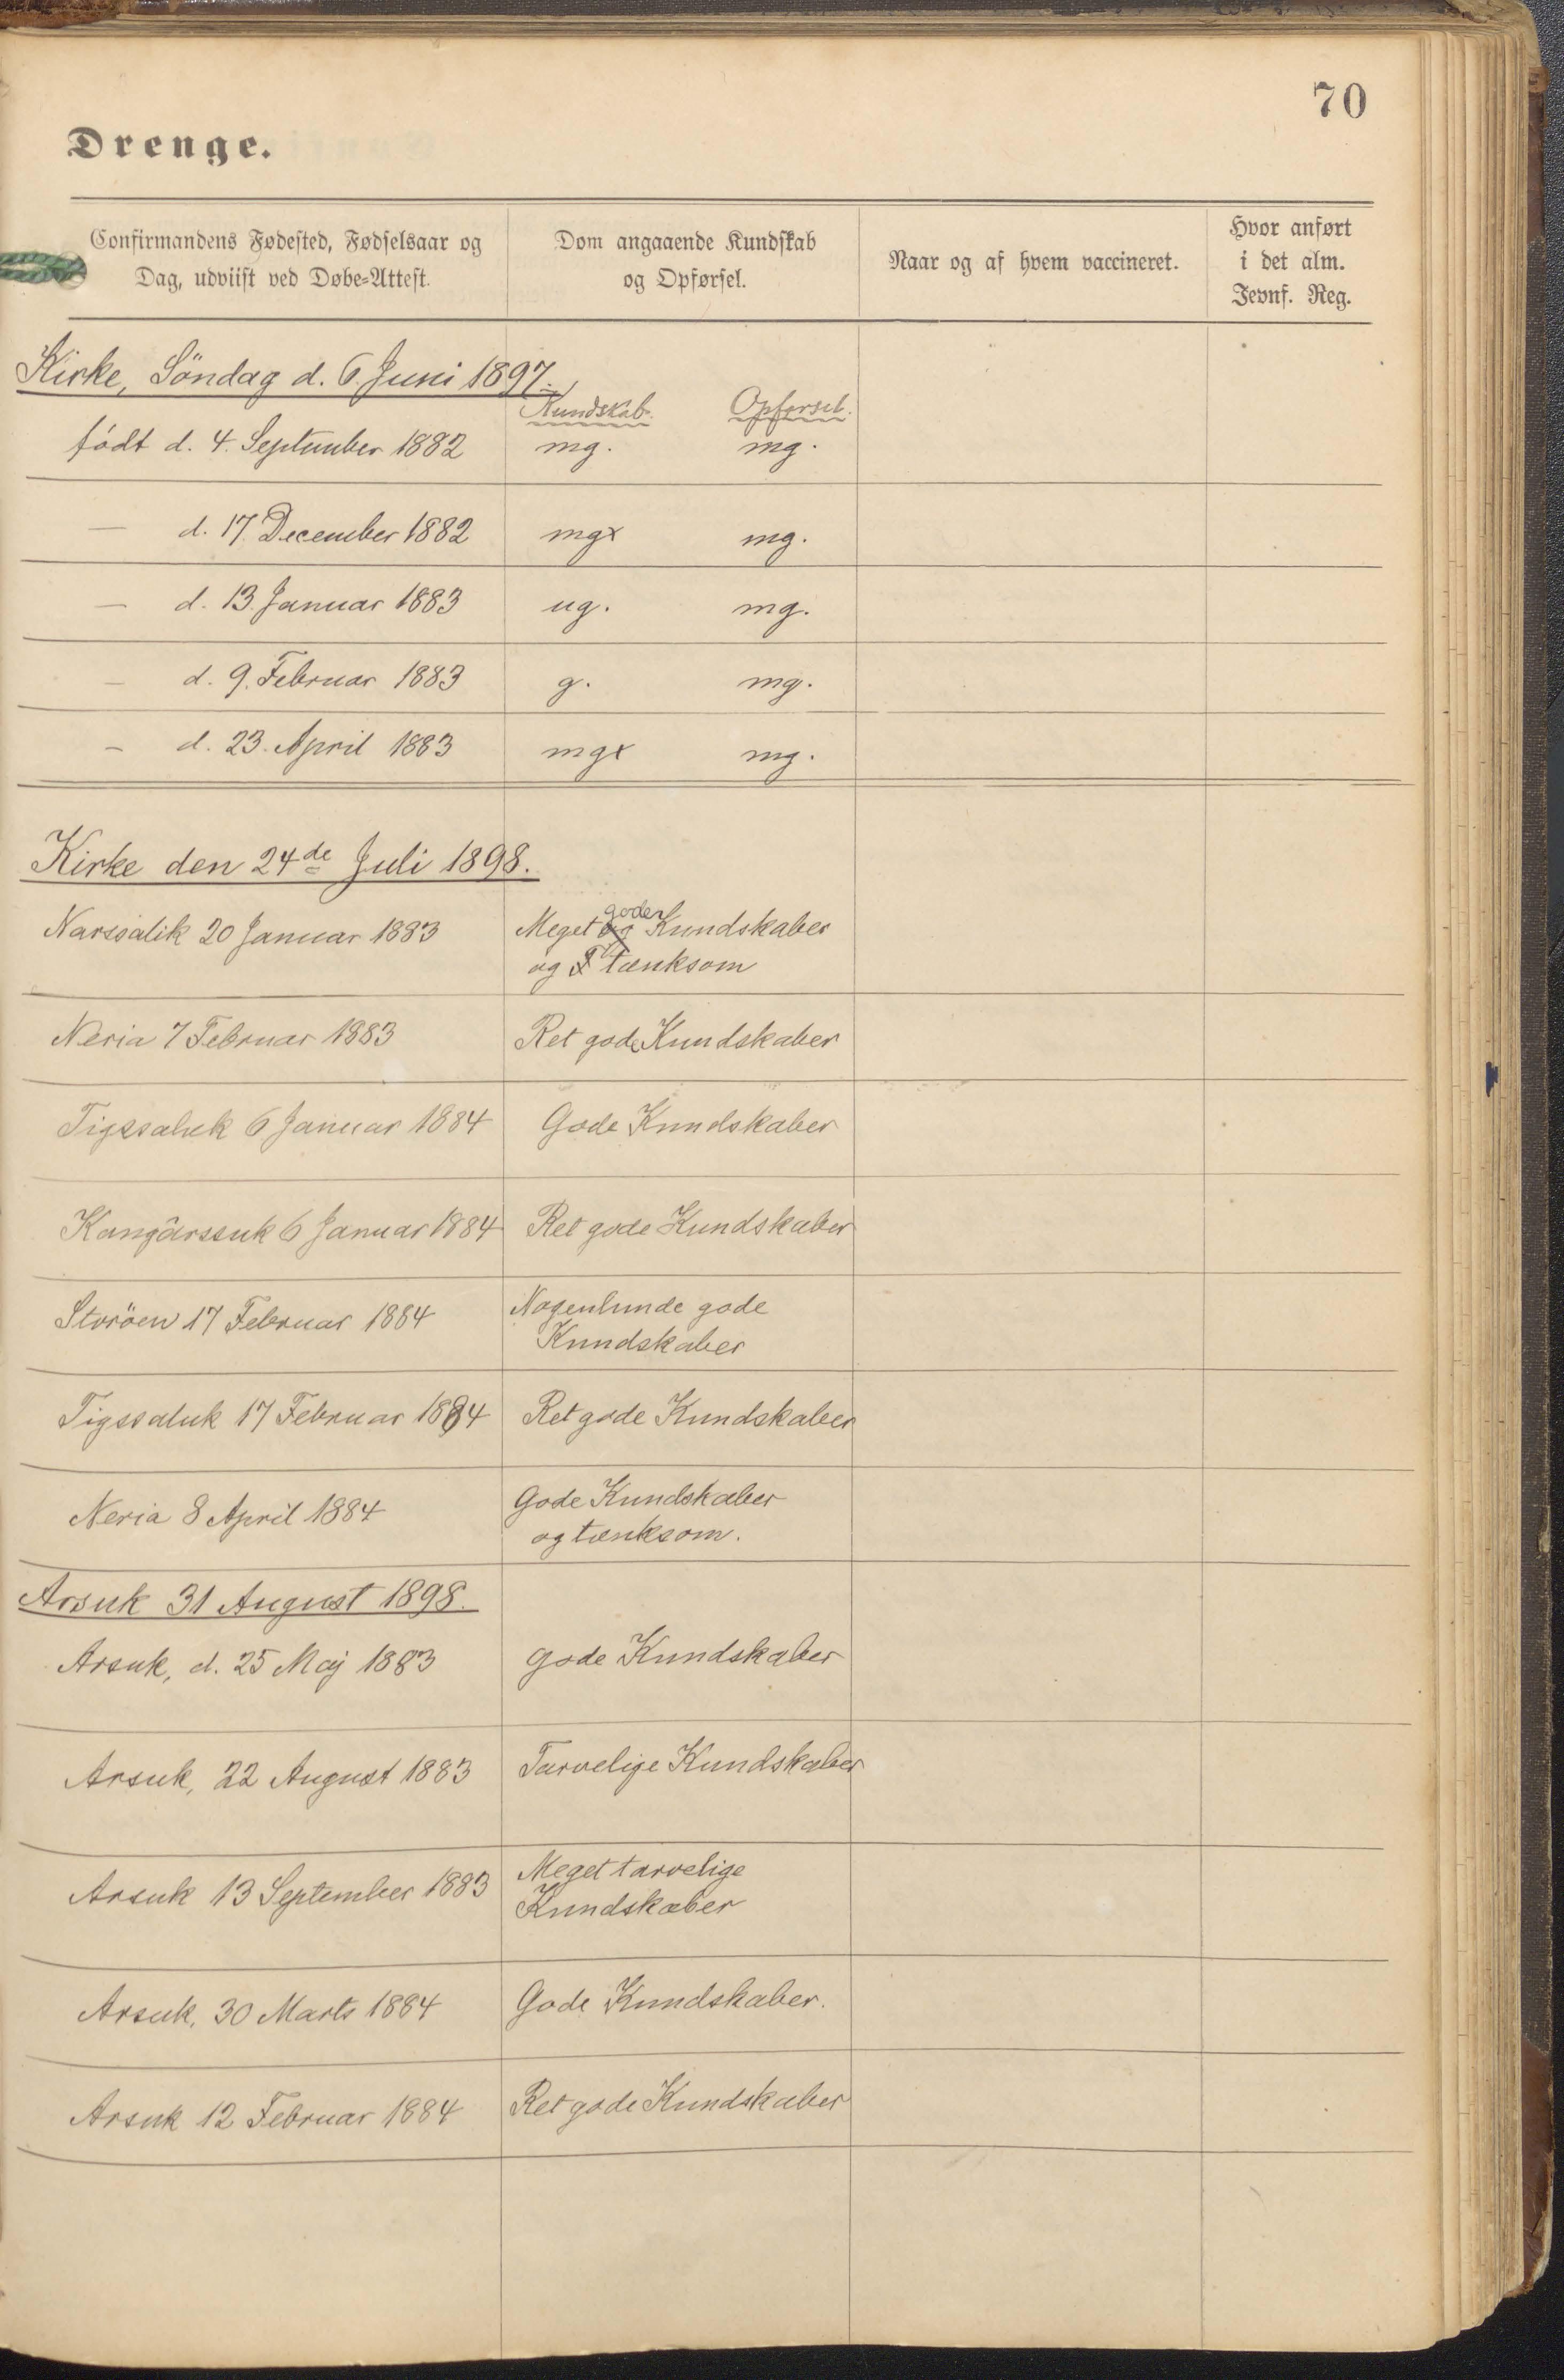 70
Drenge.
Confirmandens Fødested, Fødselsaar og
Dag, udviist ved Døbe-Attest.
Dom angaaende Kundskab
og Opførsel.
Naar og af hvem vaccineret.
Hvor anført
i det alm.
Jevnf. Reg.
Kirke, Söndag d. 6. Juni 1897.
Kundskab. Opførsel.
födt d. 4. September 1882 mg. mg.
— d. 17. December 1882 mgx mg.
— d. 13. Januar 1883 ug. mg.
— d. 9. Februar 1883 g. mg.
— d. 23. April 1883 mgx mg.
Kirke den 24de Juli 1898.
Narssalik 20 Januar 1883
Meget gode Kundskaber
og tænksom
Neria 7 Februar 1883 Ret gode Kundskaber
Tigssaluk 6 Januar 1884 Gode Kundskaber
Kangârssuk 6 Januar 1884 Ret gode Kundskaber
Storöen 17 Februar 1884
Nogenlunde gode
Kundskaber
Tigssaluk 17 Februar 1884 Ret gode Kundskaber
Neria 8 April 1884
Gode Kundskaber
og tænksom.
Arsuk 31 August 1898.
Arsuk, d. 25 Maj 1883 gode Kundskaber
Arsuk, 22 August 1883 Tarvelige Kundskaber
Arsuk 13 September 1883
Meget tarvelige
Kundskaber
Arsuk, 30 Marts 1884 Gode Kundskaber.
Arsuk 12 Februar 1884 Ret gode Kundskaber